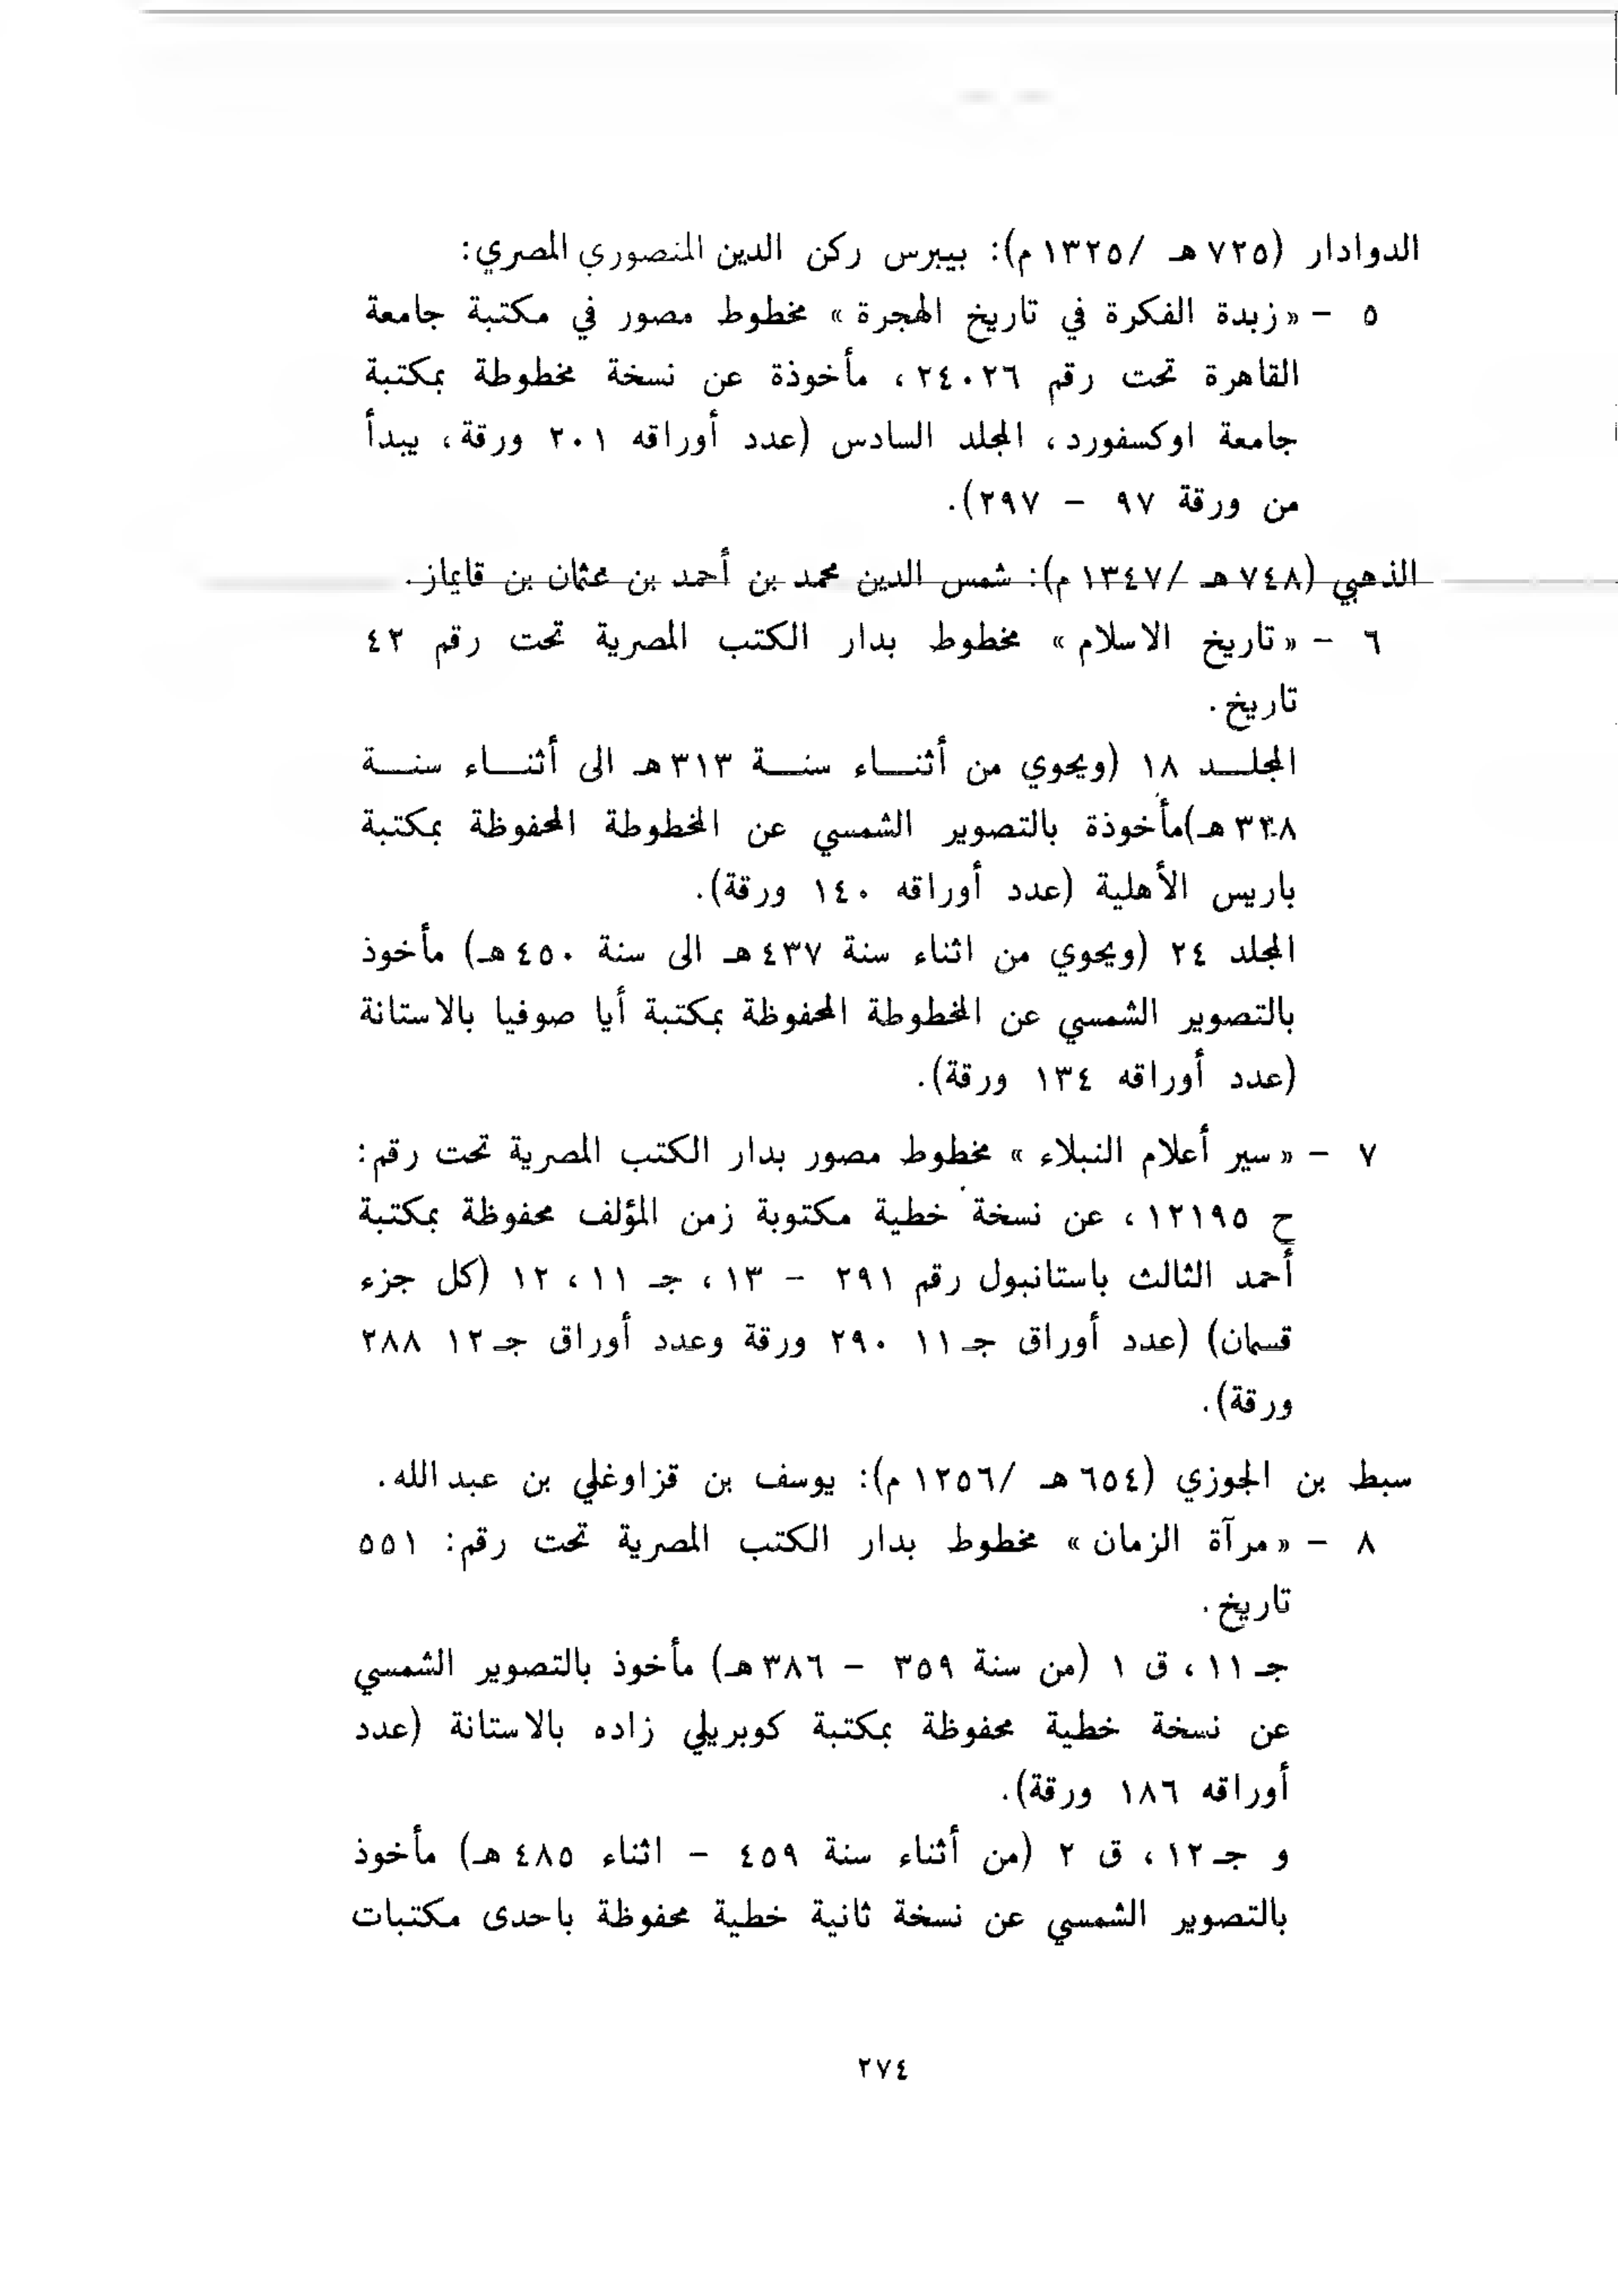 الدوادار (٧٢٥ هـ /١٣٢٥ م): بيبرس ركن الدين المنصوري المصري:
٥ - «زبدة الفكرة في تاريخ الهجرة» مخطوط مصور في مكتبة جامعة
القاهرة تحت رقم ٢٤٠٢٦، مأخوذة عن نسخة مخطوطة بمكتبة
جامعة اوكسفورد، المجلد السادس (عدد أوراقه ٢٠١ ورقة، يبدأ
من ورقة ٩٧ - ٢٩٧).
الذهبي (٧٤٨ هـ /١٣٤٧ م): شمس الدين محمد بن أحمد بن عثمان بن قايماز.
٦ - «تاريخ الاسلام» مخطوط بدار الكتب المصرية تحت رقم ٤٢
تاريخ.
المجلـــد ١٨ (ويحوي من أثنـــاء سنـــة ٣١٣هـ الى أثنـــاء سنـــة
٣٣٨ هـ)مأخوذة بالتصوير الشمسي عن المخطوطة المحفوظة بمكتبة
باريس الأهلية (عدد أوراقه ١٤٠ ورقة).
المجلد ٢٤ (ويحوي من اثناء سنة ٤٣٧هـ الى سنة ٤٥٠هـ) مأخوذ
بالتصوير الشمسي عن المخطوطة المحفوظة بمكتبة أيا صوفيا بالاستانة
(عدد أوراقه ١٣٤ ورقة).
٧ - «سير أعلام النبلاء» مخطوط مصور بدار الكتب المصرية تحت رقم:
ح ١٢١٩٥، عن نسخة خطية مكتوبة زمن المؤلف محفوظة بمكتبة
أحمد الثالث باستانبول رقم ٢٩١ - ١٣، جـ ١١، ١٢ (كل جزء
قسمان) (عدد أوراق جـ١١ ٢٩٠ ورقة وعدد أوراق جـ١٢ ٢٨٨
ورقة).
سبط بن الجوزي (٦٥٤هـ /١٢٥٦ م): يوسف بن قزاوغلي بن عبدالله.
٨ - «مرآة الزمان» مخطوط بدار الكتب المصرية تحت رقم: ٥٥١
تاريخ.
جـ١١، ق ١ (من سنة ٣٥٩ - ٣٨٦هـ) مأخوذ بالتصوير الشمسي
عن نسخة خطية محفوظة بمكتبة كوبريلي زاده بالاستانة (عدد
أوراقه ١٨٦ ورقة).
و جـ١٢، ق ٢ (من أثناء سنة ٤٥٩ - اثناء ٤٨٥هـ) مأخوذ
بالتصوير الشمسي عن نسخة ثانية خطية محفوظة باحدى مكتبات
٢٧٤